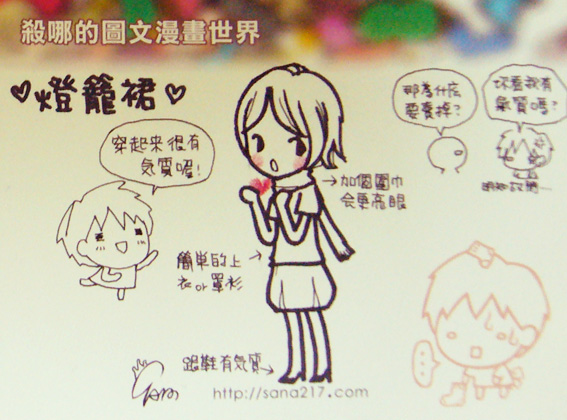 殺哪的圖文漫畫世界
燈籠裙
穿起來很有
氣質喔!
那為什麼
要賣掉?
你看我有
氣質嗎?
加個圍巾
會更亮眼
簡單的上
衣or罩衫
跟鞋有氣質
http://sana217.com